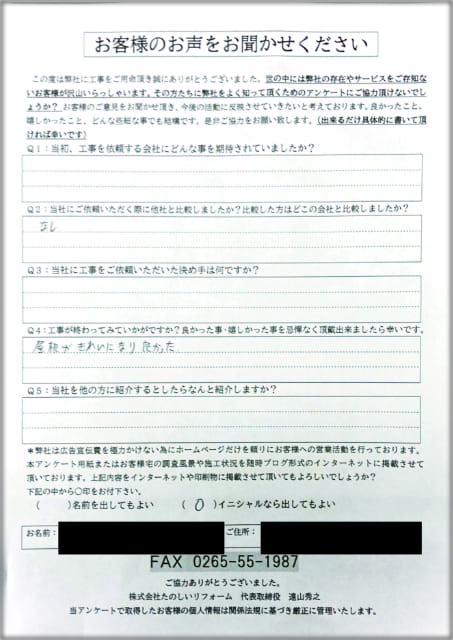 お客様のお声をお聞かせください
この度は弊社に工事をご用命頂き誠にありがとうございました。世の中には弊社の存在やサービスをご存知な
いお客様が沢山いらっしゃいます。その方たちに弊社をよく知って頂くためのアンケートにご協力頂けないでし
ょうか？ お客様のご意見をお聞かせ頂き、今後の活動に反映させていきたいと考えております。良かったこと、
嬉しかったこと、どんな些細な事でも結構です。是非ご協力をお願い致します。（出来るだけ具体的に書いて頂
ければ幸いです）
Q1：当初、工事を依頼する会社にどんな事を期待されていましたか？
Q2：当社にご依頼いただく際に他社と比較しましたか？比較した方はどこの会社と比較しましたか？
なし
Q3：当社に工事をご依頼いただいた決め手は何ですか？
Q4：工事が終わってみていかがですか？良かった事・嬉しかった事を忌憚なく頂戴出来ましたら幸いです。
屋根がきれいになり良かった
Q5：当社を他の方に紹介するとしたらなんと紹介しますか？
＊弊社は広告宣伝費を極力かけない為にホームページだけを頼りにお客様への営業活動を行っております。
本アンケート用紙またはお客様宅の調査風景や施工状況を随時ブログ形式のインターネットに掲載させて
頂いております。上記内容をインターネットや印刷物に掲載させて頂いてもよろしいでしょうか？
下記の中から〇印をお付下さい。
（　　）名前を出してもよい　　（ 〇 ）イニシャルなら出してもよい
お名前：　　ご住所：
FAX 0265-55-1987
ご協力ありがとうございました。
株式会社たのしいリフォーム　代表取締役　遠山秀之
当アンケートで取得したお客様の個人情報は関係法規に基づき厳正に管理いたします。